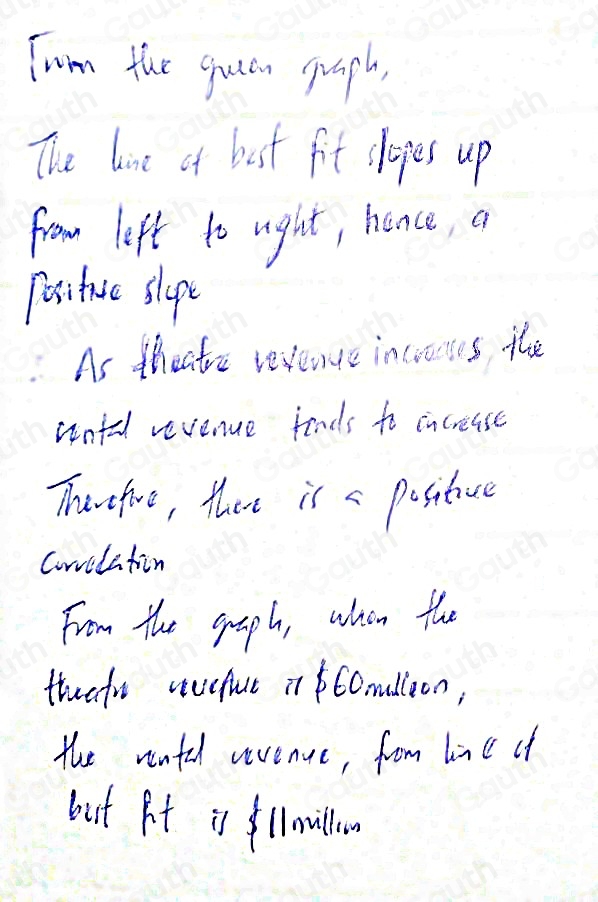 From the given graph,
The line of best fit slopes up
from left to right, hence, a
positive slope
∴ As theatre revenue increases, the
rental revenue tends to increase
Therefore, there is a positive
correlation
From the graph, when the
theatre revenue is $60 million,
the rental revenue, from line of
best fit is $11 million